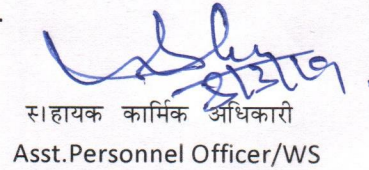 सहायक कार्मिक अधिकारी
Asst.Personnel Officer/WS